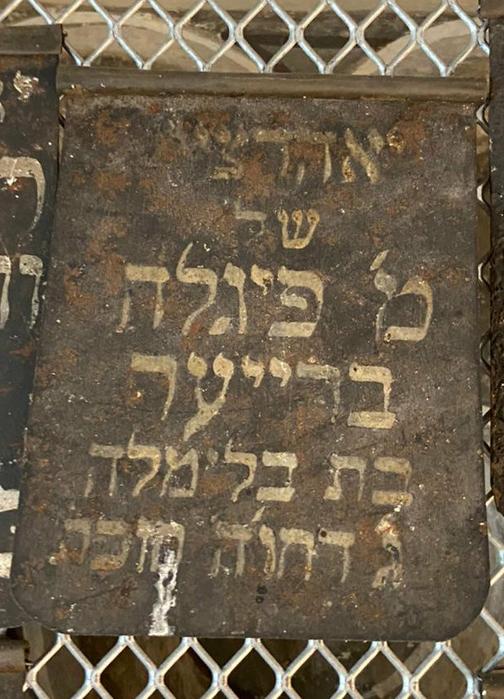 יאהרצייט
של
מ' פיגלה
ברייער
בת בלימלה
ג' דחוה'מ סכת